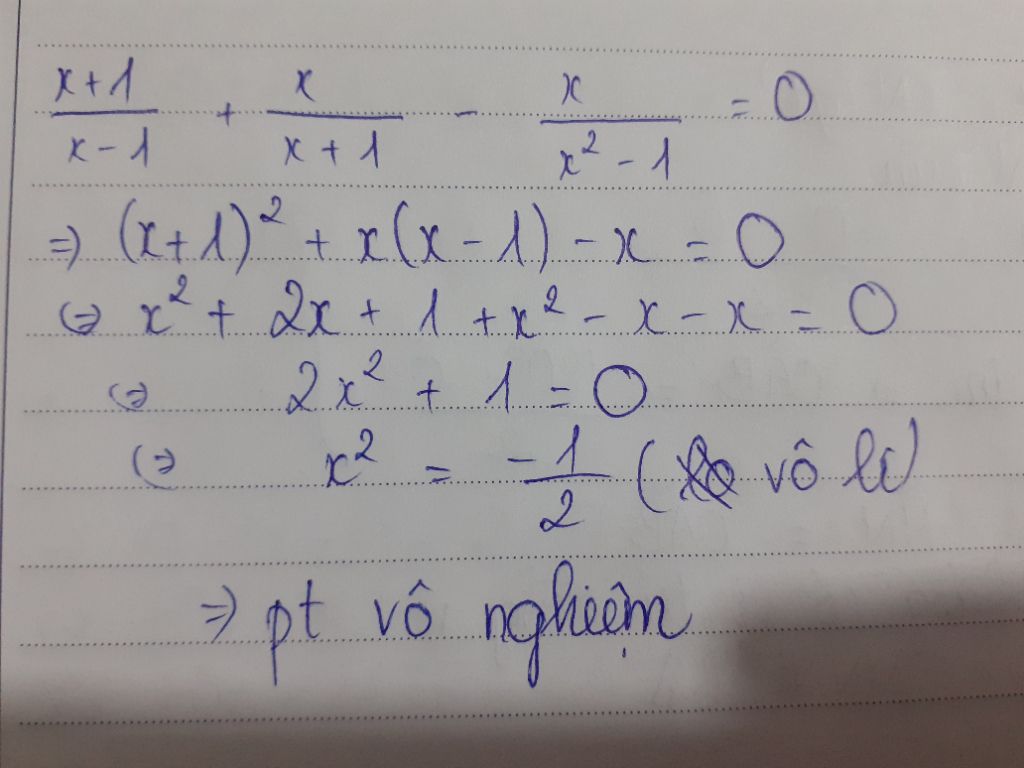 x+1/x-1 + x/x+1 - x/x²-1 = 0
=) (x+1)² + x(x-1) - x = 0
(=) x² + 2x + 1 + x² - x - x = 0
(=) 2x² + 1 = 0
(=) x² = -1/2 (vô lí)
=) pt vô nghiệm